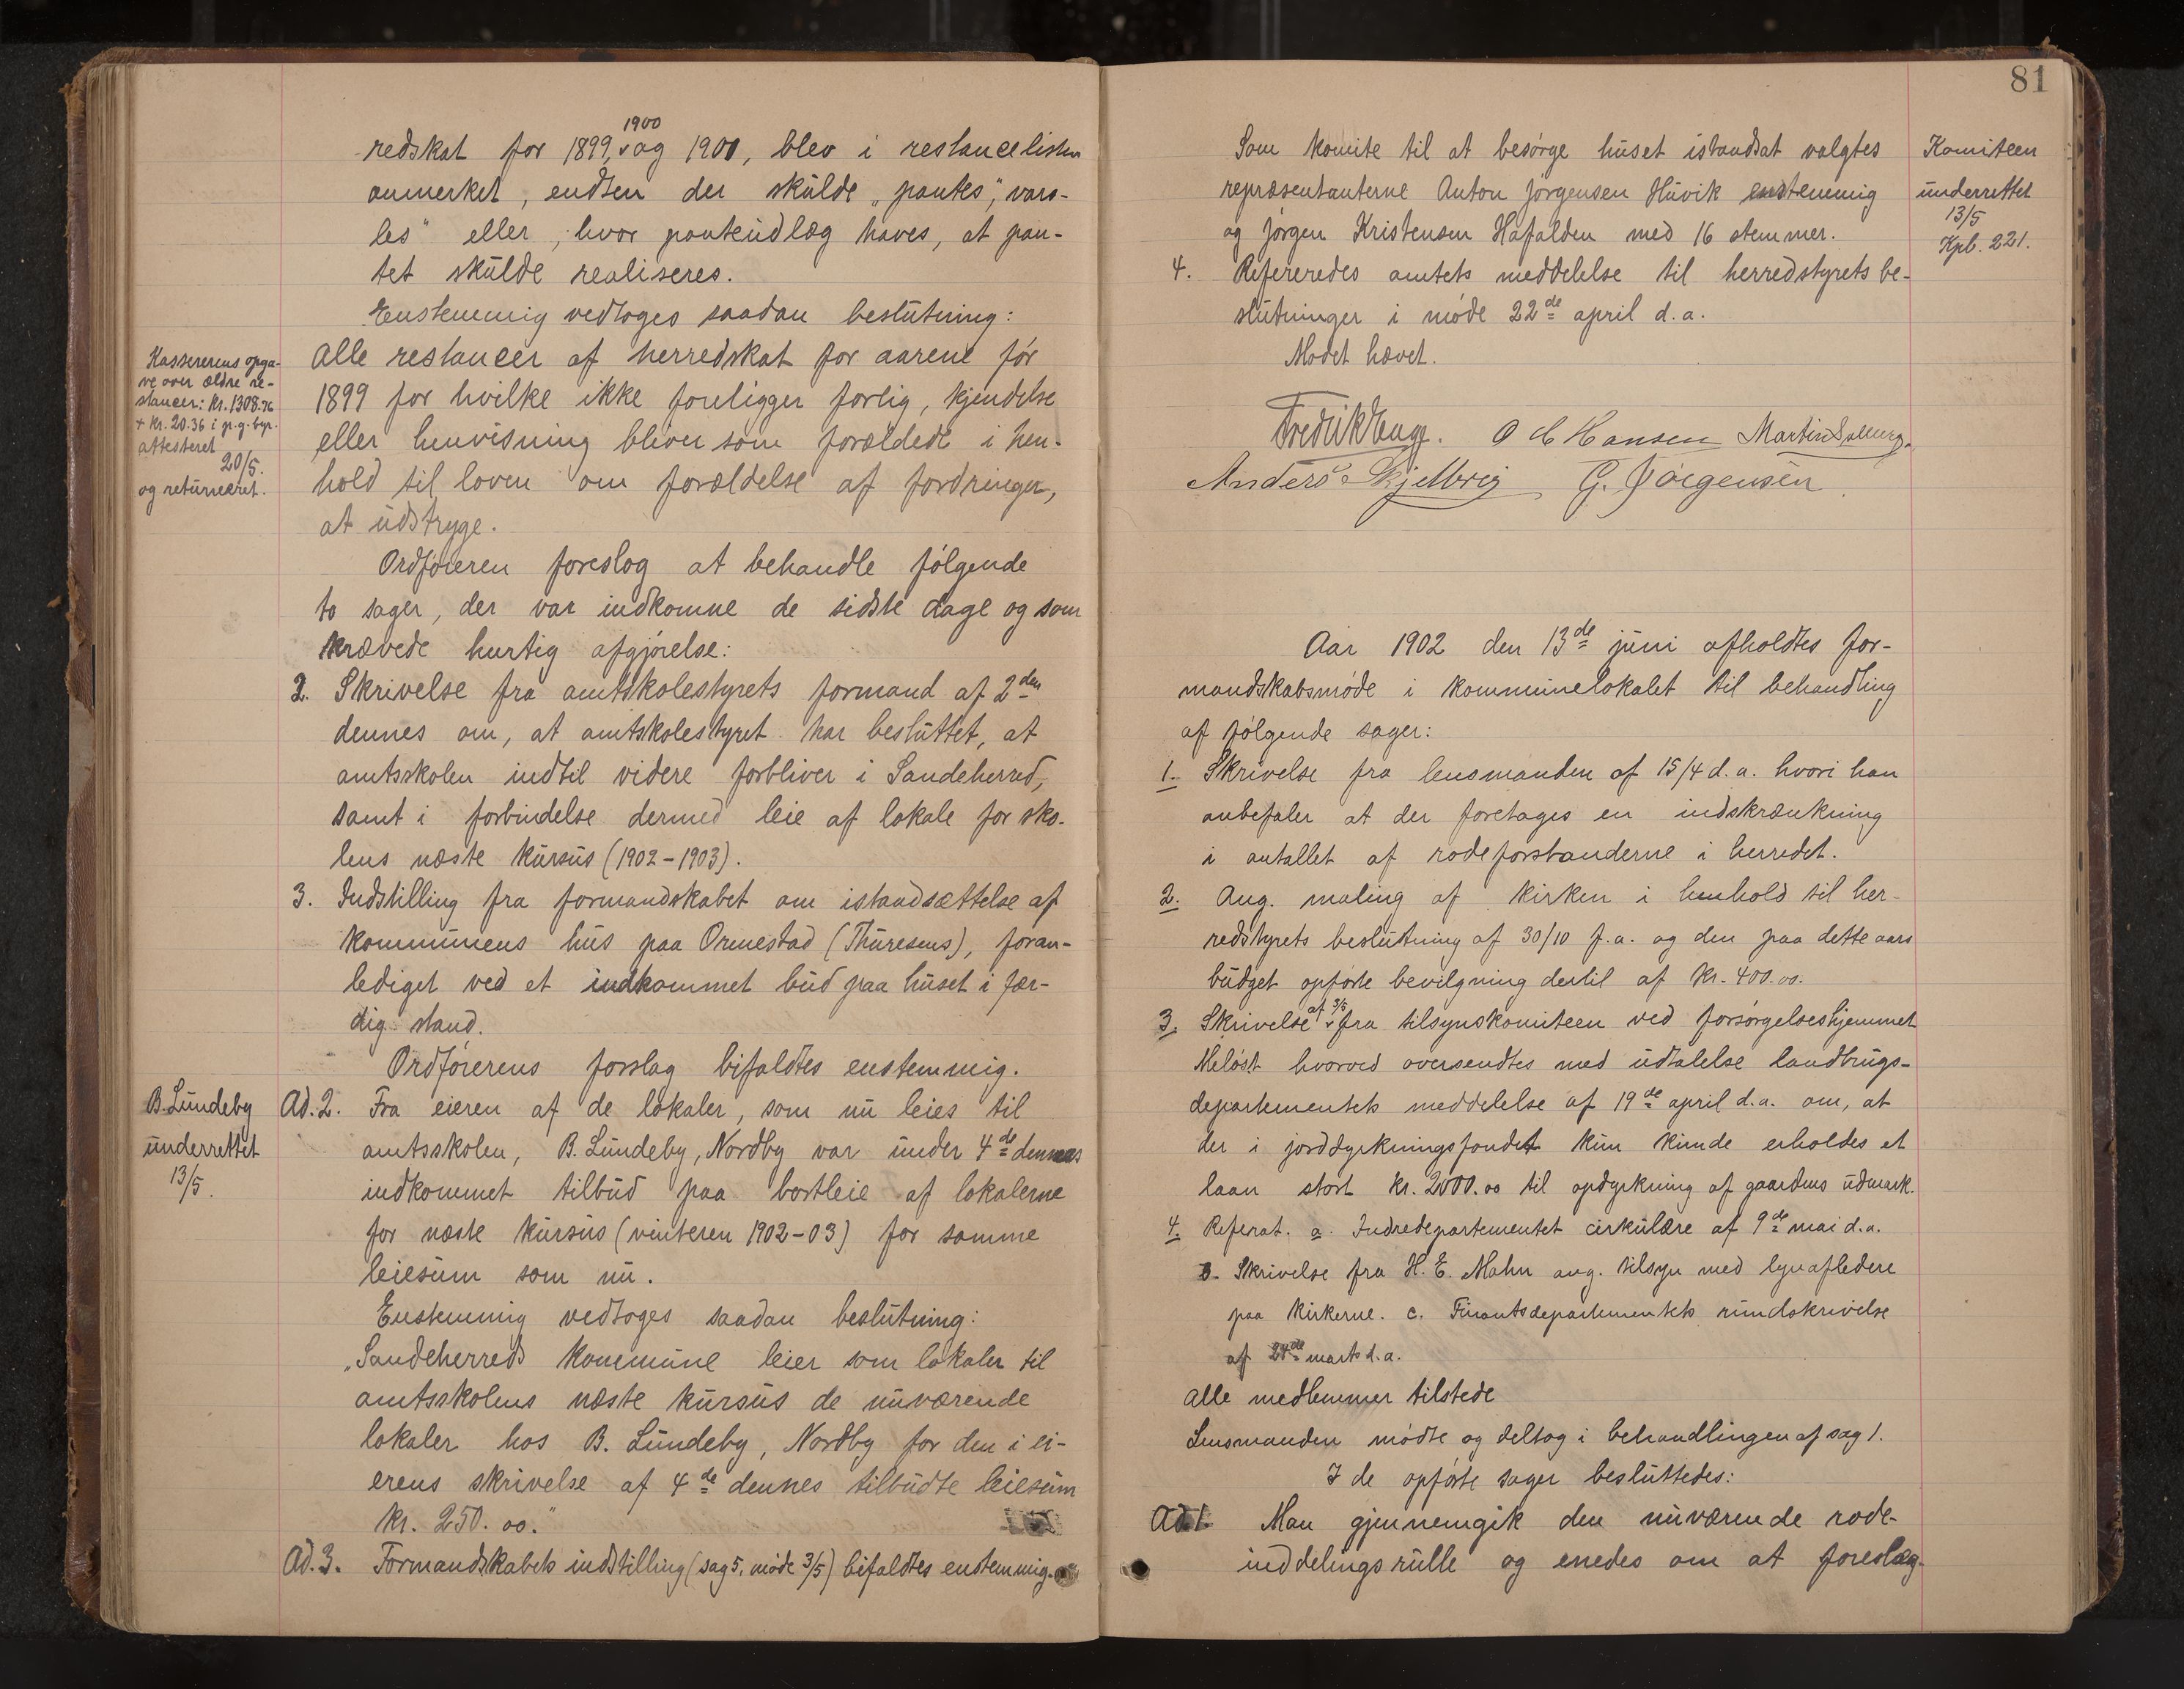 redskat for 1899, 1900 og 1901, blev i restancelisten
anmerket, endten der skulde „pantes", „vars-
les" eller, hvor panteudlæg haves, at pan-
tet skulde realiseres.
Enstemmig vedtoges saadan beslutning:
Kassererens opga-
ve over ældre re-
stancer: kr. 1308.76
+ kr. 20.36 i gr. g. byr.
attesteret
20/5.
og returneret.
Alle restancer af herredskat for aarene før
1899 for hvilke ikke foreligger forlig, kjendelse
eller henvisning bliver som forældede i hen-
hold til loven om forældelse af fordringer,
at udstryge.
Ordføreren foreslog at behandle følgende
to sager, der var indkomne de sidste dage og som
krævede hurtig afgjørelse:
2. Skrivelse fra amtskolestyrets formand af 2den
dennes om, at amtskolestyret har besluttet, at
amtsskolen indtil videre forbliver i Sandeherred,
samt i forbindelse dermed leie af lokale for sko-
lens næste kursus (1902-1903).
3. Indstilling fra formandskabet om istandsættelse af
kommunens hus paa Ormestad (Thuresens), foran-
lediget ved et indkommet bud paa huset i fær-
dig stand.
Ordførerens forslag bifaldtes enstemmig.
B. Lundeby
underrettet
13/5.
Ad. 2. Fra eieren af de lokaler, som nu leies til
amtsskolen, B. Lundeby, Nordby var under 4de dennes
indkommet tilbud paa bortleie af lokalerne
for næste kursus (vinteren 1902-03) for samme
leiesum som nu.
Enstemmig vedtoges saadan beslutning:
„Sandeherreds kommune leier som lokaler til
amtsskolens næste kursus de nuværende
lokaler hos B. Lundeby, Nordby for den i ei-
erens skrivelse af 4de dennes tilbudte leiesum
kr. 250.00."
Ad. 3. Formandskabets indstilling (sag 5, møde 3/5) bifaldtes enstemmig.
81
Som komite til at besørge huset istandsat valgtes
repræsentanterne Anton Jørgensen Huvik enstemmig
og Jørgen Kristensen Hafalden med 16 stemmer.
Komiteen
underrettet
13/5
Kpb. 221.
4. Refereredes amtets meddelelse til herredstyrets be-
slutninger i møde 22de april d.a.
Mødet hævet.
Fredrik Enge. O C Hansen Martin Solberg.
Anders Skjelbrig G. Jørgensen
Aar 1902 den 13de juni afholdtes for-
mandskabsmøde i kommunelokalet til behandling
af følgende sager:
1. Skrivelse fra lensmanden af 15/4 d.a. hvori han
anbefaler at der foretages en indskrænkning
i antallet af rodeforstanderne i herredet.
2. Ang. maling af kirken i henhold til her-
redstyrets beslutning af 30/10 f.a. og den paa dette aars
budget opførte bevilgning dertil af kr. 400.00.
3. Skrivelse af 3/5 fra tilsynskomiteen ved forsørgelseshjemmet
Meløst hvorved oversendtes med udtalelse landbrugs-
departementets meddelelse af 19de april d.a. om, at
der i jorddyrkningsfondet kun kunde erholdes et
laan stort kr. 2000.00 til opdyrkning af gaardens udmark.
4. Referat. a. Indredepartementet cirkulære af 9de mai d.a.
b. Skrivelse fra H. E. Mohn ang. tilsyn med lynafledere
paa kirkerne. c. Finantsdepartementets rundskrivelse
af 24de marts d.a.
Alle medlemmer tilstede
Lensmanden mødte og deltog i behandlingen af sag 1.
I de opførte sager besluttedes:
Ad 1. Man gjennemgik den nuværende rode-
inddelings rulle og enedes om at foreslag-